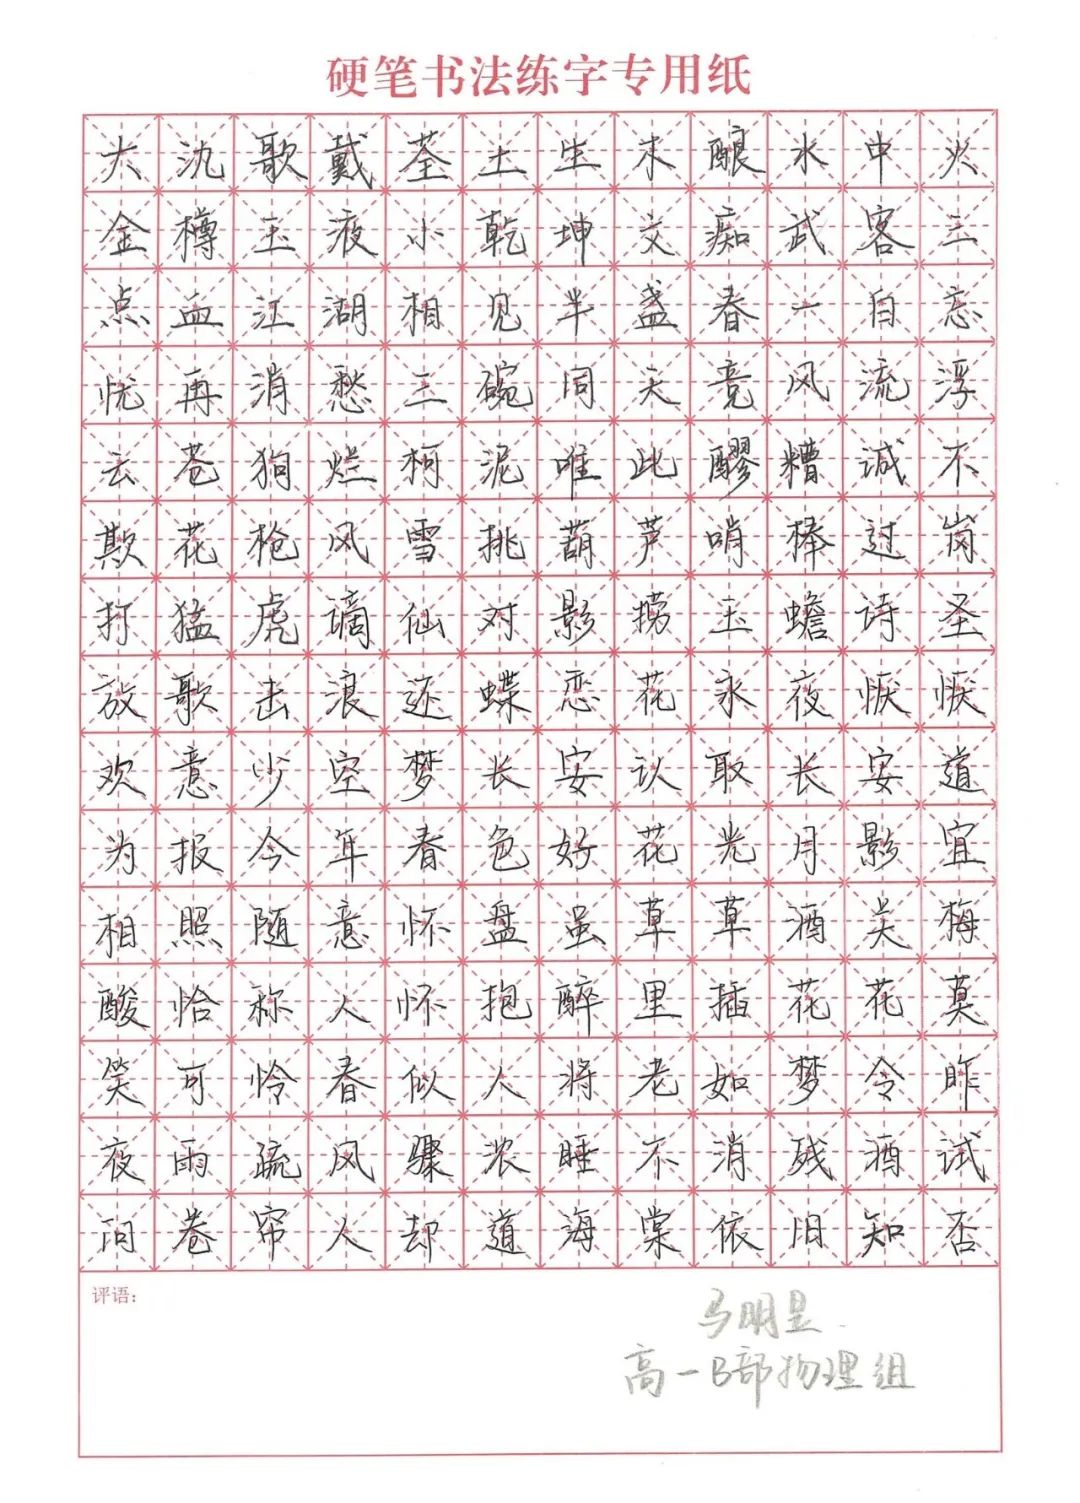 硬笔书法练字专用纸
大氿歌戴荃土生木酿水中火
金樽玉液小乾坤文痴武客三
点血江湖相见半盏春一自忘
忧再消愁三碗同天竟风流浮
云苍狗烂柯泥唯此醪糟诚不
欺花枪风雪挑葫芦哨棒过岗
打猛虎谪仙对影捞玉蟾诗圣
放歌击浪迹蝶恋花永夜恹恹
欢意少空梦长安认取长安道
为报今年春色好花光月影宜
相照随意怀盘虽草草酒美梅
酸恰称人怀抱醉里插花花莫
笑可怜春似人将老如梦令昨
夜雨疏风骤浓睡不消残酒试
问卷帘人却道海棠依旧知否
评语：
马明昱
高一B部物理组